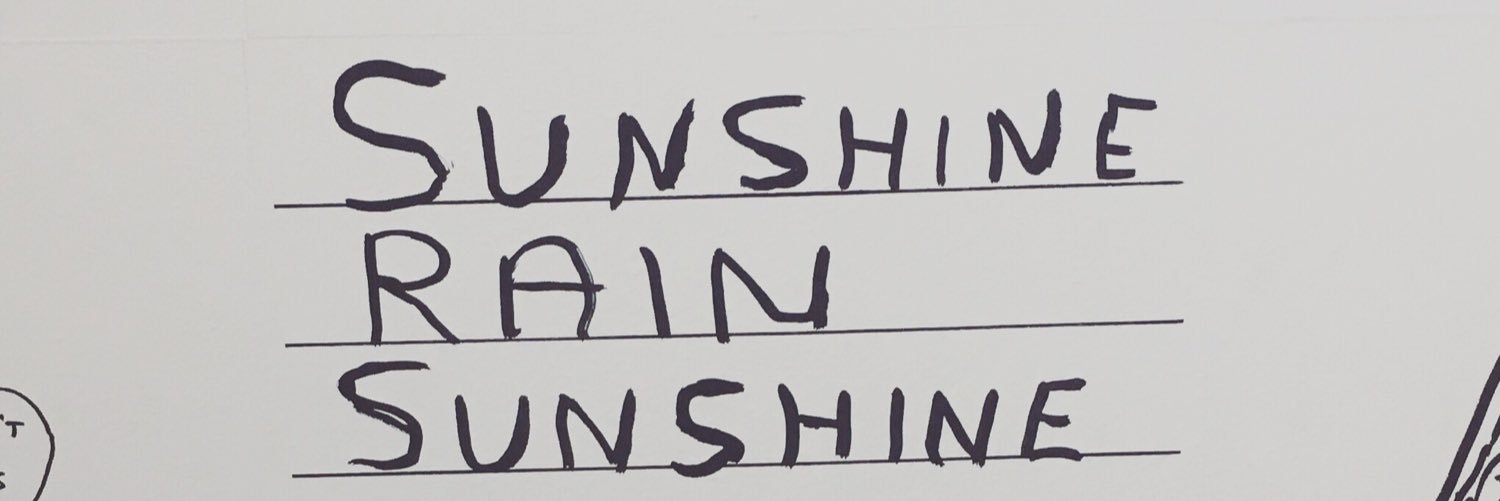 SUNSHINE
RAIN
SUNSHINE